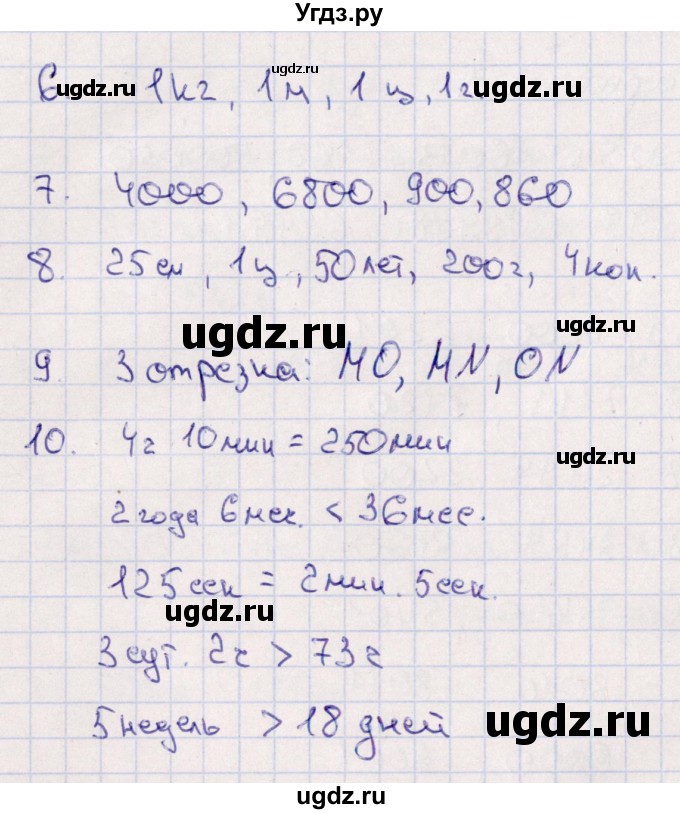 Угдз.ру
ugdz.ru ugdz.ru ugdz.ru
6 1кг, 1м, 1 ц, 1г
7. 4000, 6800, 900, 860
8. 25см, 1ц, 50лет, 200г, 4коп.
ugdz.ru ugdz.ru
9. 3 отрезка: МО, MN, ON
10. 4ч 10мин = 250мин
ugdz.ru
2 года 6мес. < 36мес.
125сек = 2мин. 5сек.
ugdz.ru
3 сут. 2ч > 73ч
5 недель > 18 дней
ugdz.ru
ugdz.ru